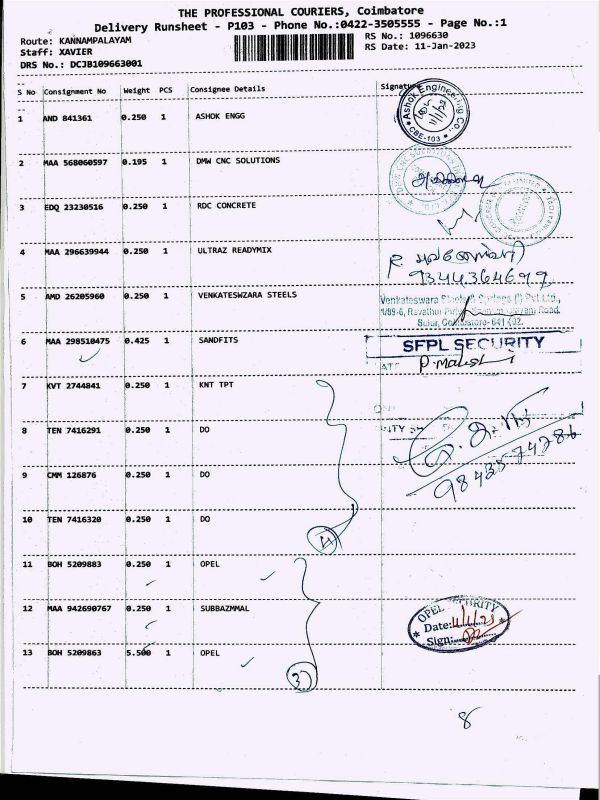 THE PROFESSIONAL COURIERS, Coimbatore
Delivery Runsheet - P103 - Phone No.:0422-3505555 - Page No.:1
Route: KANNAMPALAYAM RS No.: 1096630
Staff: XAVIER RS Date: 11-Jan-2023
DRS No.: DCJB109663001
S No Consignment No Weight PCS Consignee Details Signature
1 AND 841361 0.250 1 ASHOK ENGG
Ashok Engineering Co., CBE-103
11/1/23
2 MAA 568060597 0.195 1 DMW CNC SOLUTIONS
3 EDQ 23230516 0.250 1 RDC CONCRETE
4 MAA 296639944 0.250 1 ULTRAZ READYMIX
9344364699
5 AMD 26205960 0.250 1 VENKATESWZARA STEELS
Venkateswara Steels & Springs (I) Pvt Ltd.,
Road.
Sulur, Coimbatore- 641 402.
6 MAA 298510475 0.425 1 SANDFITS
SFPL SECURITY
7 KVT 2744841 0.250 1 KNT TPT
8 TEN 7416291 0.250 1 DO
9 CMM 126876 0.250 1 DO
9843574786
10 TEN 7416320 0.250 1 DO
4
11 BOH 5209883 0.250 1 OPEL
12 MAA 942690767 0.250 1 SUBBAZMMAL
OPEL SECURITY
Date: 11/1/23
Sign:
13 BOH 5209863 5.500 1 OPEL
3
8